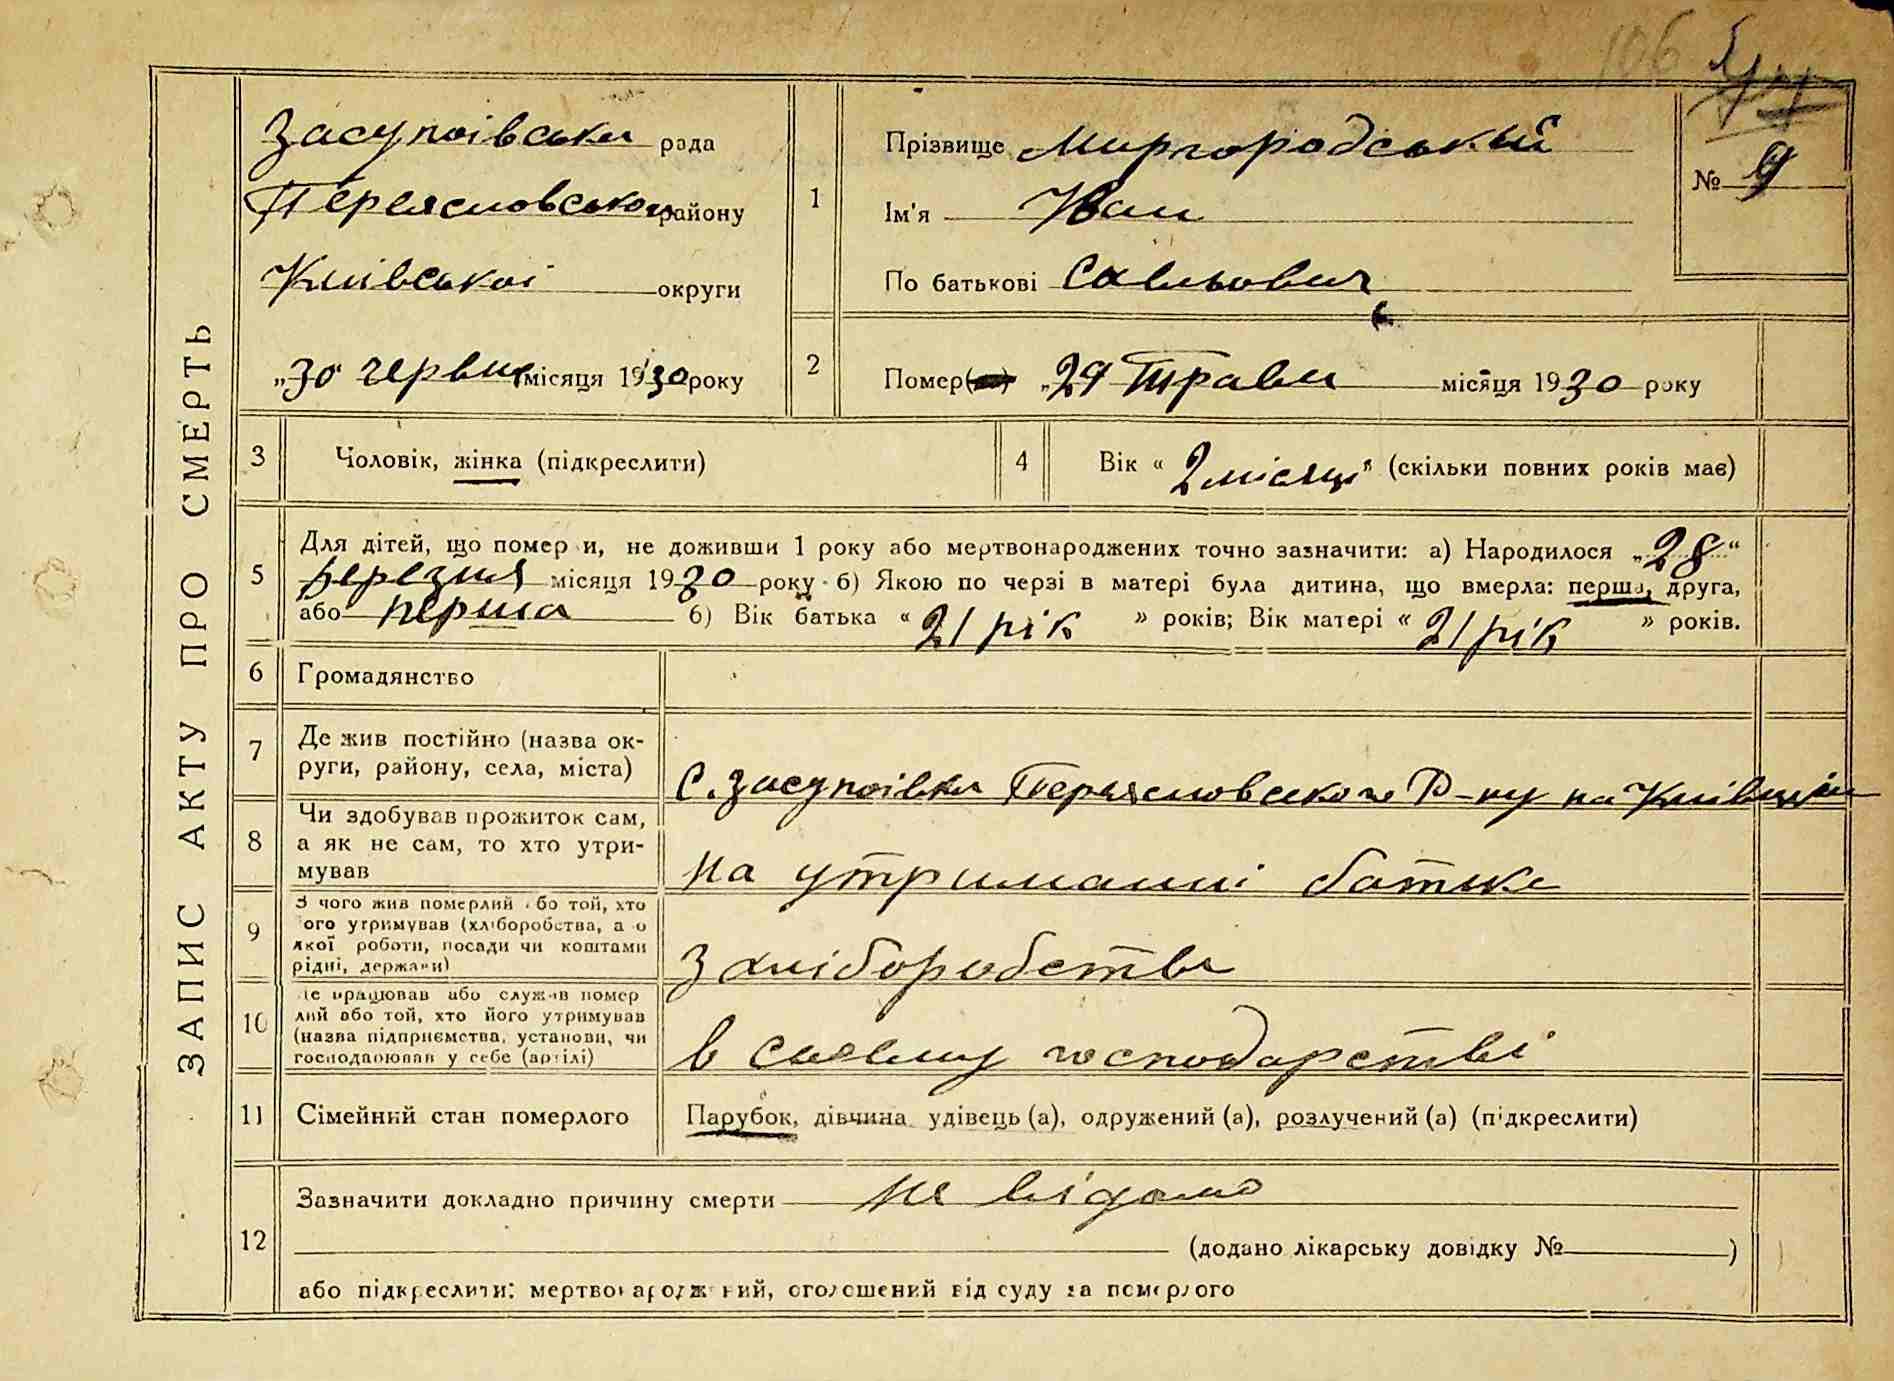 106
ЗАПИС АКТУ ПРО СМЕРТЬ
Засупоївська рада
Переясловського району
Київської округи
„30" червня місяця 1930 року
1
Прізвище Миргородський
Ім'я Иван
По батькові Савльович
№ 9
2
Помер(ла) „29 Травня місяця 1930 року
3
Чоловік, жінка (підкреслити)
4
Вік « 2 місяці " (скільки повних років має)
5
Для дітей, що померли, не доживши 1 року або мертвонароджених точно зазначити: а) Народилося „28"
березня місяця 1930 року б) Якою по черзі в матері була дитина, що вмерла: перша, друга,
або перша б) Вік батька « 21 рік » років; Вік матері « 21 рік » років.
6
Громадянство
7
Де жив постійно (назва ок-
руги, району, села, міста)
С. Засупоївка Переясловского Р-ну на Київщіні
8
Чи здобував прожиток сам,
а як не сам, то хто утри-
мував
на утриманні батька
9
З чого жив померлий або той, хто
його утримував (хліборобства, або
якої роботи, посади чи коштами
рідні, держави)
З хліборобства
10
Де працював або служив помер
лий або той, хто його утримував
(назва підприємства, установи, чи
господарював у себе (артілі)
в своєму господарстві
11
Сімейний стан померлого
Парубок, дівчина, удівець (а), одружений (а), розлучений (а) (підкреслити)
12
Зазначити докладно причину смерти не відомо
(додано лікарську довідку № )
або підкреслити: мертвонароджений, оголошений від суду за померлого